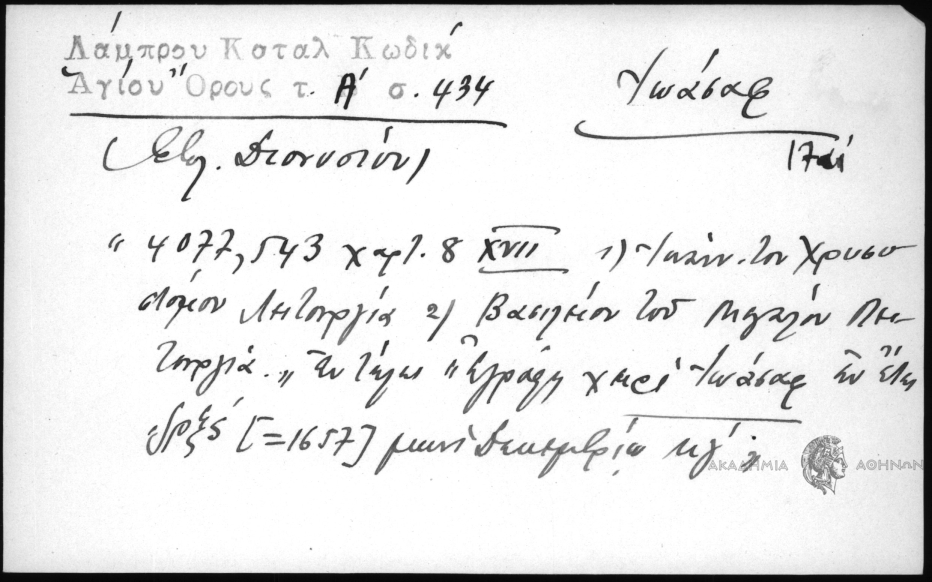 Λάμπρου Καταλ Κωδικ
Ἁγίου Ὄρους τ. Α' σ. 434
Ἰωάσαφ
17
(Μον. Διονυσίου)
" 4077,543 χαρτ. 8 XVII 1) Ἰωάν. του Χρυσο
στόμου Λειτουργία 2) Βασιλείου τοῦ Μεγάλου Λει-
τουργία. „ Ἐν τέλει "Ἐγράφη χειρί Ἰωάσαφ ἐν ἔτει
͵ζρξς´ [=1657] μηνί Δεκεμβρίῳ κγ´
ΑΚΑΔΗΜΙΑ ΑΘΗΝΩΝ